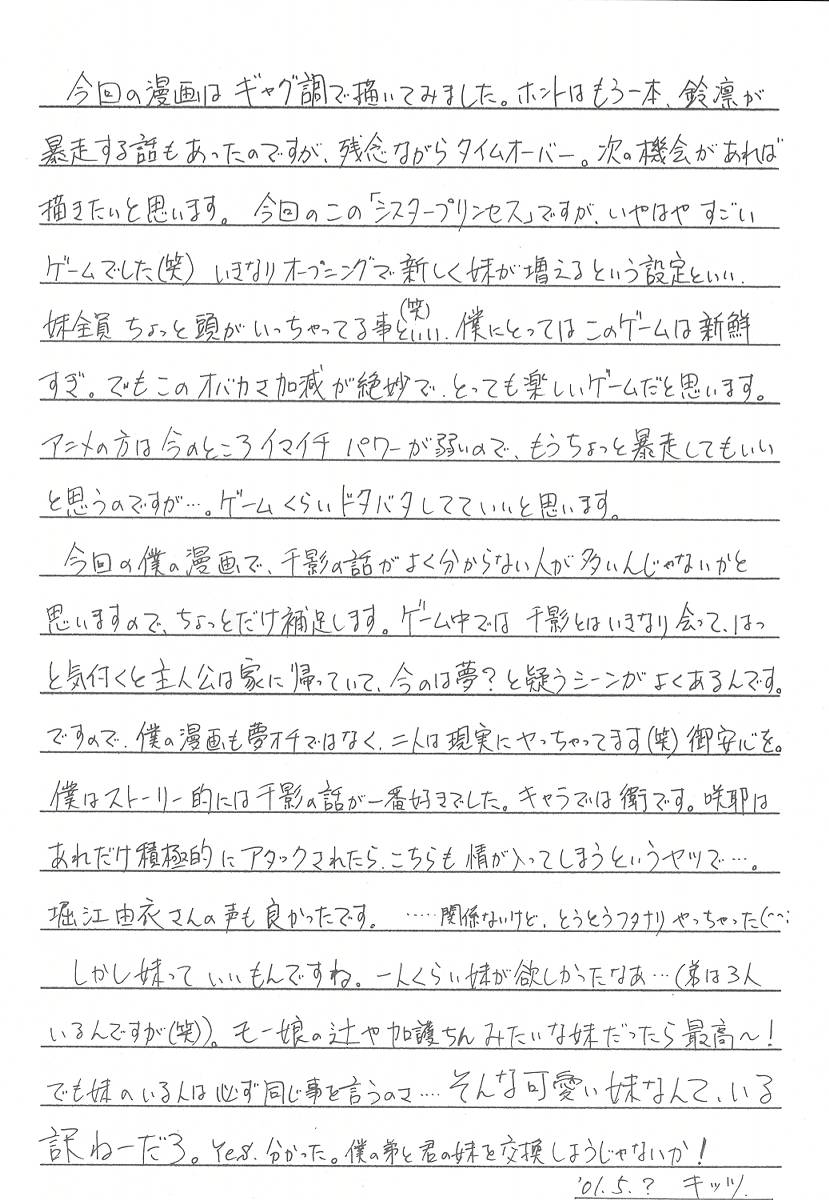 今回の漫画は ギャグ調で描いてみました。ホントはもう一本、鈴凛が
暴走する話もあったのですが、残念ながらタイムオーバー。次の機会があれば
描きたいと思います。 今回のこの「シスタープリンセス」ですが、いやはや すごい
ゲームでした(笑) いきなりオープニングで新しく妹が増えるという設定といい、
妹全員 ちょっと頭がいっちゃってる事(笑)といい、僕にとってはこのゲームは新鮮
すぎ。でもこのオバカさ加減が絶妙で、とっても楽しいゲームだと思います。
アニメの方は今のところイマイチ パワーが弱いので、もうちょっと暴走してもいい
と思うのですが…。ゲームくらいドタバタしてていいと思います。
今回の僕の漫画で、千影の話がよく分からない人が多いんじゃないかと
思いますので、ちょっとだけ補足します。ゲーム中では 千影とはいきなり会って、はっ
と気付くと主人公は家に帰っていて、今のは夢?と疑うシーンがよくあるんです。
ですので、僕の漫画も夢オチではなく、二人は現実にヤっちゃってます(笑)御安心を。
僕はストーリー的には千影の話が一番好きでした。キャラでは衛です。咲耶は
あれだけ積極的にアタックされたら、こちらも情が入ってしまうというヤツで…。
堀江由衣さんの声も良かったです。 ……関係ないけど、とうとうフタナリやっちゃった(^^;
しかし妹って いいもんですね。一人くらい妹が欲しかったなあ…(弟は3人
いるんですが(笑))。モー娘の辻や加護ちんみたいな妹だったら最高～!
でも妹のいる人は必ず同じ事を言うのさ…. そんな可愛い妹なんて、いる
訳ねーだろ。Yes. 分かった。僕の弟と君の妹を交換しようじゃないか!
'01.5.? キッツ